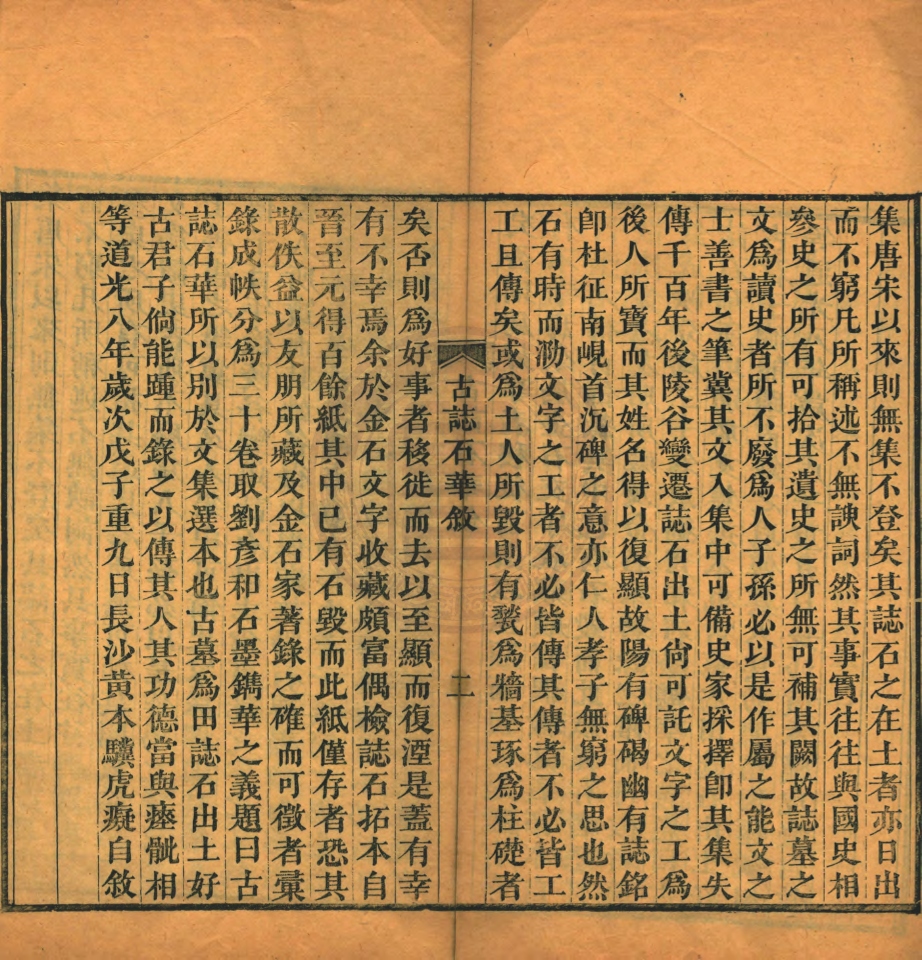 集唐宋以來則無集不登矣其誌石之在土者亦日出
而不窮凡所稱述不無諛詞然其事實往往與國史相
參史之所有可拾其遺史之所無可補其闕故誌墓之
文爲讀史者所不廢爲人子孫必以是作屬之能文之
士善書之筆冀其文入集中可備史家採擇卽其集失
傳千百年後陵谷變遷誌石出土尙可託文字之工爲
後人所寶而其姓名得以復顯故陽有碑碣幽有誌銘
卽杜征南峴首沉碑之意亦仁人孝子無窮之思也然
石有時而泐文字之工者不必皆傳其傳者不必皆工
工且傳矣或爲土人所毀則有甃爲牆基琢爲柱礎者
古誌石華敘
二
矣否則爲好事者移徙而去以至顯而復湮是蓋有幸
有不幸焉余於金石文字收藏頗富偶檢誌石拓本自
晉至元得百餘紙其中已有石毀而此紙僅存者恐其
散佚益以友朋所藏及金石家著錄之確而可徵者彙
錄成帙分爲三十卷取劉彥和石墨鐫華之義題曰古
誌石華所以別於文集選本也古墓爲田誌石出土好
古君子倘能踵而錄之以傳其人其功德當與瘞骴相
等道光八年歲次戊子重九日長沙黃本驥虎癡自敘